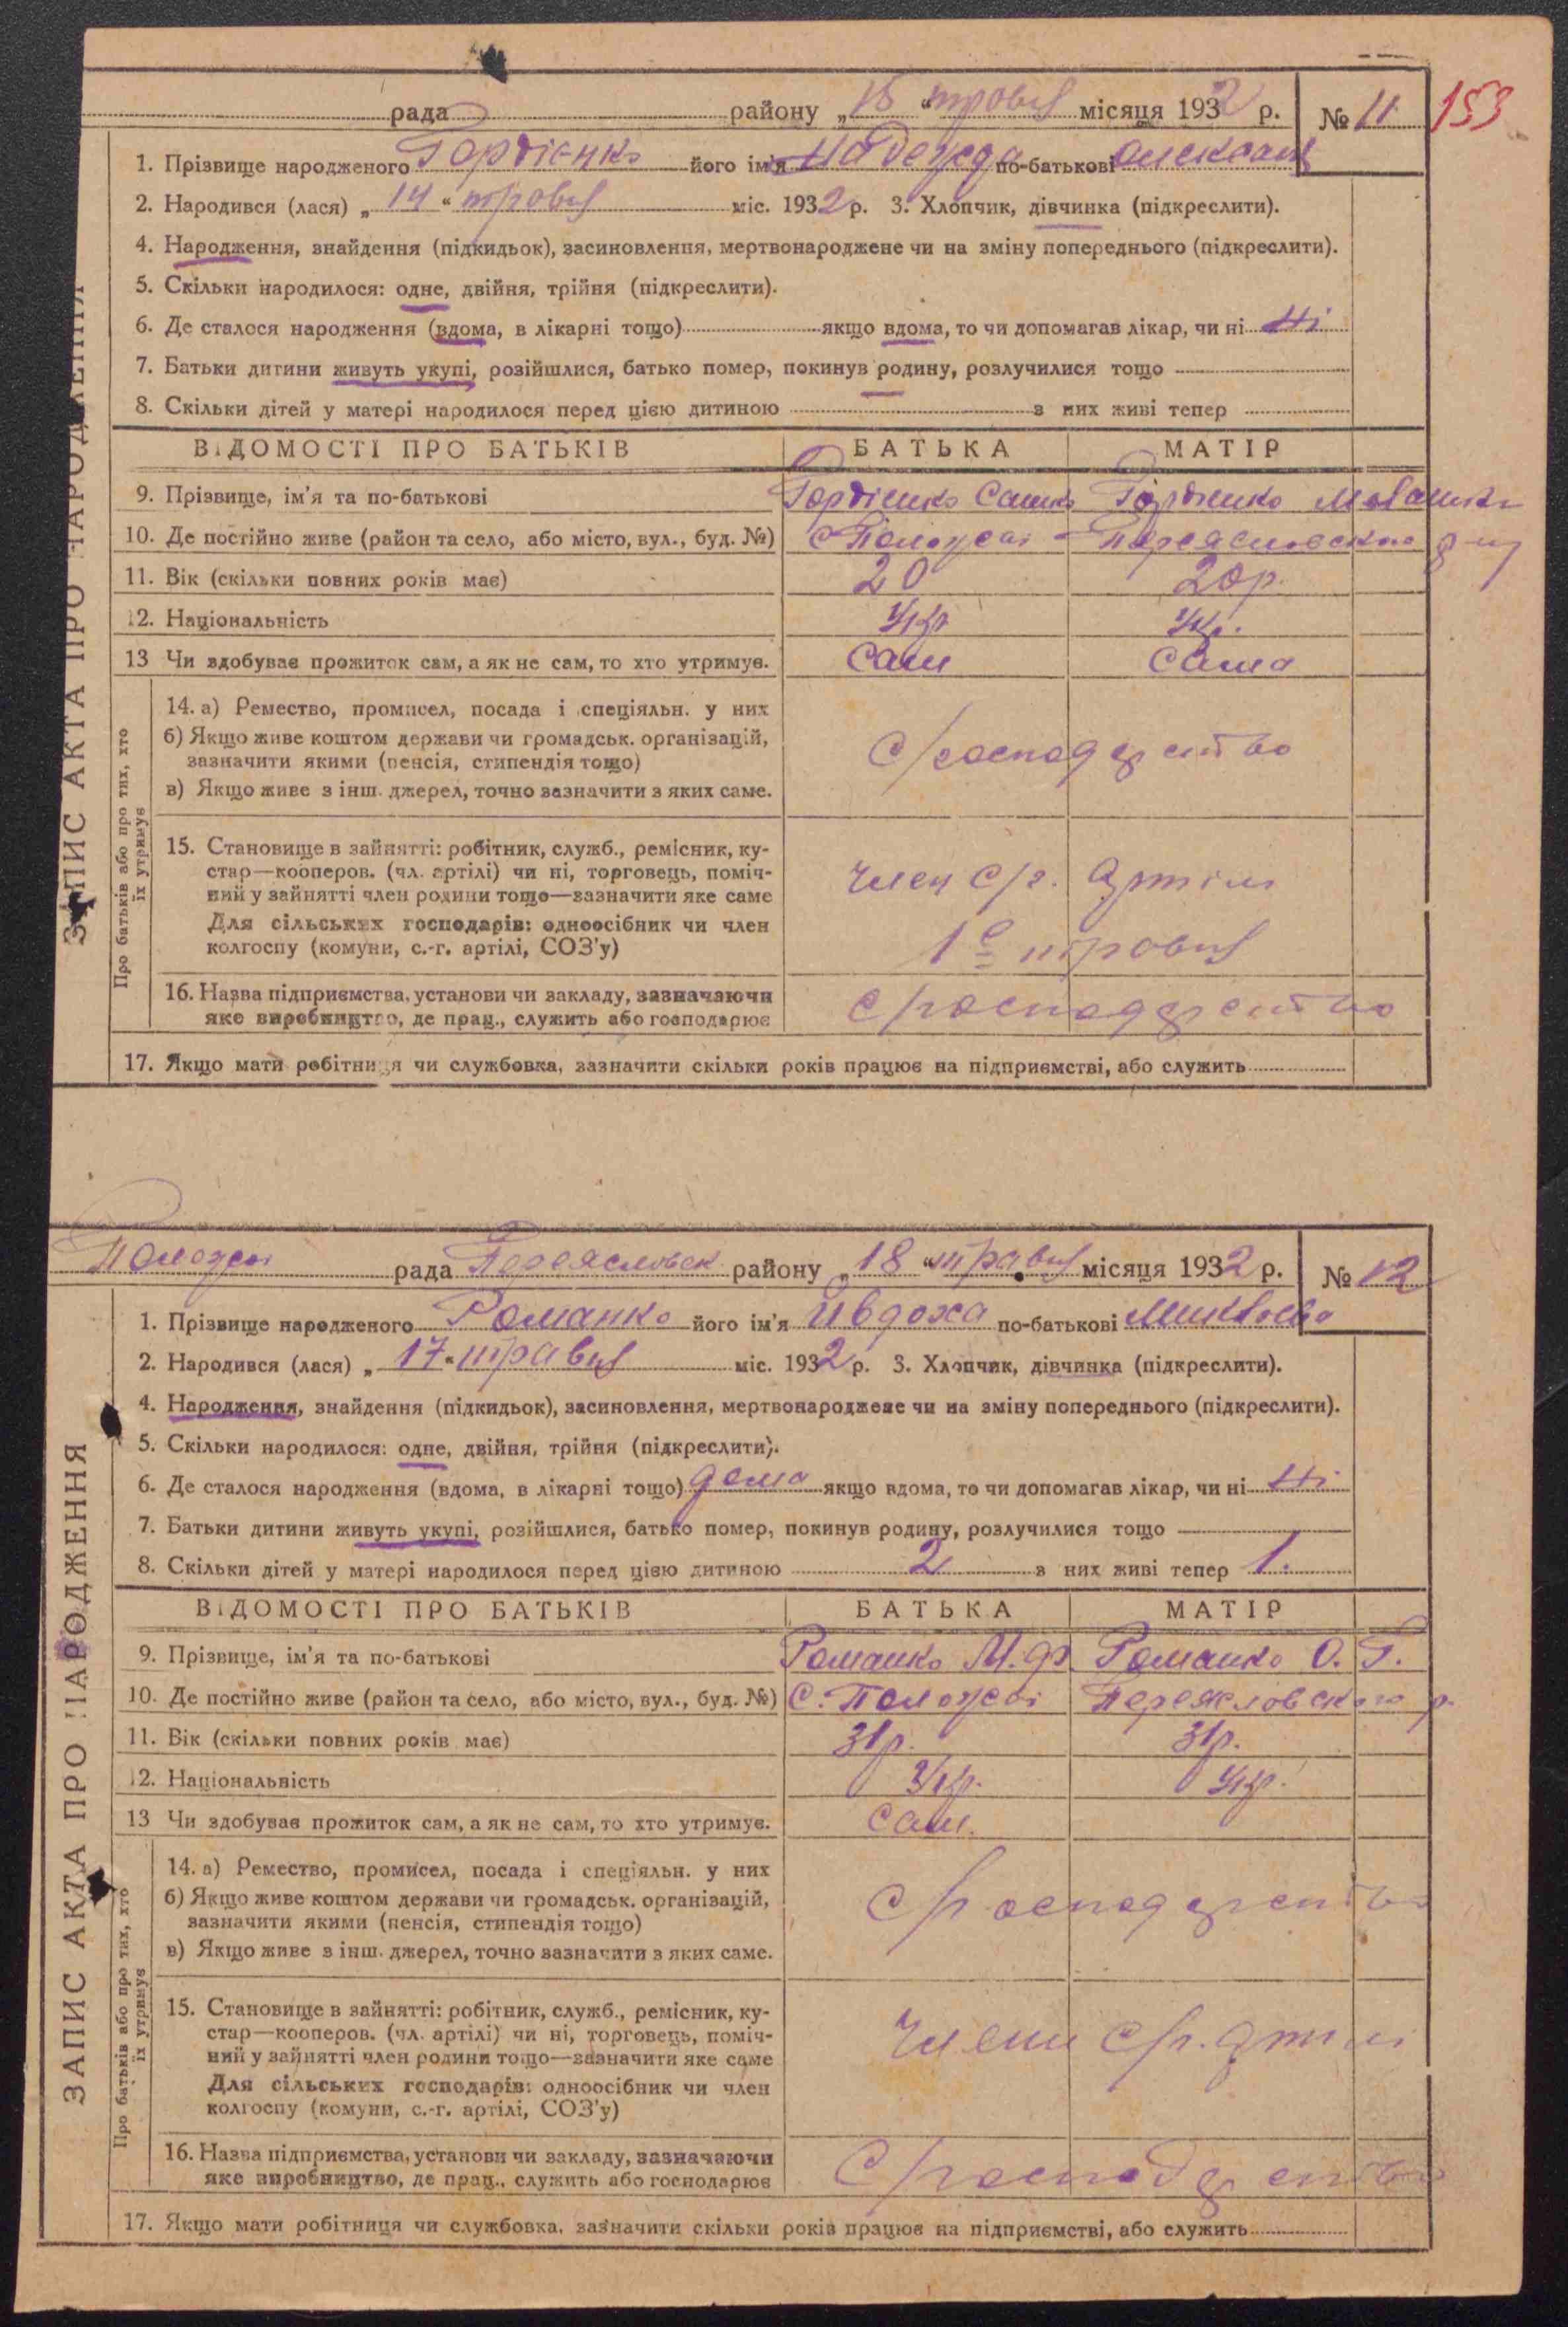 153
рада района „15 “ травня місяця 1932 р. № 11
1. Прізвище народженого Гордієнко його ім'я Надежда по-батькові Олександ
2. Народився (лася) „ 14 “ травня міс. 1932 р. 3. Хлопчик, дівчинка (підкреслити).
4. Народження, знайдення (підкидьок), засиновлення, мертвонароджене чи на зміну попереднього (підкреслити).
5. Скільки народилося: одне, двійня, трійня (підкреслити).
6. Де сталося народження (вдома, в лікарні тощо) якщо вдома, то чи допомагав лікар, чи ні Ні
7. Батьки дитини живуть укупі, розійшлися, батько помер, покинув родину, розлучилися тощо
8. Скільки дітей у матері народилося перед цією дитиною з них живі тепер
ВІДОМОСТІ ПРО БАТЬКІВ БАТЬКА МАТІР
9. Прізвище, ім'я та по-батькові Гордієнко Сашко Гордієнко
10. Де постійно живе (район та село, або місто, вул., буд. №) с Положаї Переясловского
11. Вік (скільки повних років має) 20 20р.
12. Національність Укр Укр.
13 Чи здобуває прожиток сам, а як не сам, то хто утримує. Сам Сама
Про батьків або про тих, хто їх утримує
14. а) Ремество, промисел, посада і спеціяльн. у них
б) Якщо живе коштом держави чи громадськ. організацій,
зазначити якими (пенсія, стипендія тощо)
в) Якщо живе з інш. джерел, точно зазначити з яких саме.
с/господарство
15. Становище в зайнятті: робітник, служб., ремісник, ку-
стар—кооперов. (чл. артілі) чи ні, торговець, поміч-
ний у зайнятті член родини тощо—зазначити яке саме
Для сільських господарів: одноосібник чи член
колгоспу (комуни, с.-г. артілі, СОЗ'у)
член с/г. артіли
1е травня
16. Назва підприємства, установи чи закладу, зазначаючи
яке виробництво, де прац., служить або господарює
с/господарство
17. Якщо мати робітниця чи службовка, зазначити скільки років працює на підприємстві, або служить
ЗАПИС АКТА ПРО НАРОДЖЕННЯ
Положаї рада Переясловск району „ 18 “ травня місяця 1932 р. № 12
1. Прізвище народженого Романко його ім'я Івдоха по-батькові
2. Народився (лася) „ 17 “ травня міс. 1932 р. 3. Хлопчик, дівчинка (підкреслити).
4. Народження, знайдення (підкидьок), засиновлення, мертвонароджене чи на зміну попереднього (підкреслити).
5. Скільки народилося: одне, двійня, трійня (підкреслити).
6. Де сталося народження (вдома, в лікарні тощо) дома якщо вдома, то чи допомагав лікар, чи ні Ні
7. Батьки дитини живуть укупі, розійшлися, батько помер, покинув родину, розлучилися тощо
8. Скільки дітей у матері народилося перед цією дитиною 2 з них живі тепер 1.
ВІДОМОСТІ ПРО БАТЬКІВ БАТЬКА МАТІР
9. Прізвище, ім'я та по-батькові Романко М. Ф. Романко О. Г.
10. Де постійно живе (район та село, або місто, вул., буд. №) С. Положаї Переясловского р.
11. Вік (скільки повних років має) 31р. 31р.
12. Національність Укр. Укр.
13 Чи здобуває прожиток сам, а як не сам, то хто утримує. Сам.
Про батьків або про тих, хто їх утримує
14. а) Ремество, промисел, посада і спеціяльн. у них
б) Якщо живе коштом держави чи громадськ. організацій,
зазначити якими (пенсія, стипендія тощо)
в) Якщо живе з інш. джерел, точно зазначити з яких саме.
с/господарство
15. Становище в зайнятті: робітник, служб., ремісник, ку-
стар—кооперов. (чл. артілі) чи ні, торговець, поміч-
ний у зайнятті член родини тощо—зазначити яке саме
Для сільських господарів: одноосібник чи член
колгоспу (комуни, с.-г. артілі, СОЗ'у)
Члени с/г. артілі
16. Назва підприємства, установи чи закладу, зазначаючи
яке виробництво, де прац., служить або господарює
С/господарство
17. Якщо мати робітниця чи службовка, зазначити скільки років працює на підприємстві, або служить
ЗАПИС АКТА ПРО НАРОДЖЕННЯ